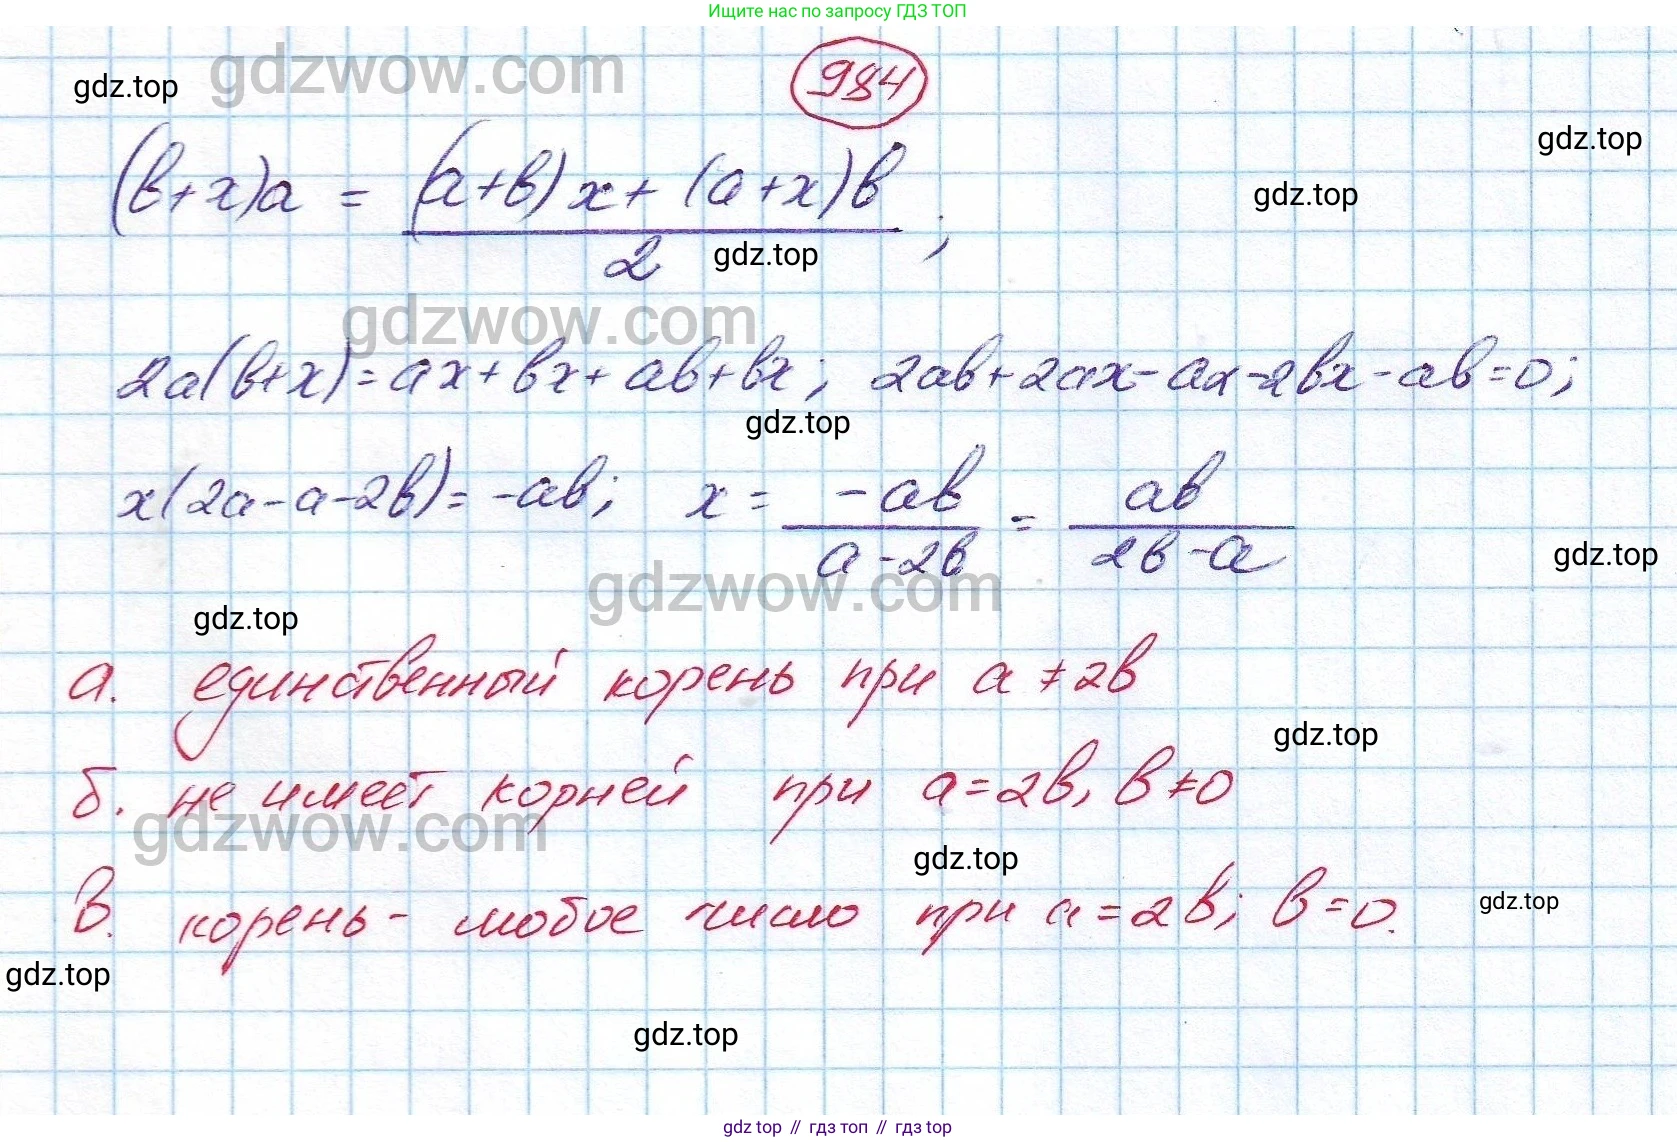 Ищите нас по запросу ГДЗ ТОП
984
gdzwow.com
gdz.top
gdz.top
(в+x)a = (a+в)x+(a+x)в / 2 ;
gdz.top
gdz.top
gdzwow.com
2a(в+x)=ax+вx+aв+вx; 2aв+2ax-ax-2вx-aв=0;
gdz.top
x(2a-a-2в)=-aв; x = -aв / a-2в = aв / 2в-a
gdz.top
gdzwow.com
gdz.top
а. единственный корень при a≠2в
gdz.top
б. не имеет корней при a=2в, в≠0
gdzwow.com
gdz.top
в. корень- любое число при a=2в; в=0.
gdz.top
gdz.top
gdz.top
gdz top // гдз топ // гдз top